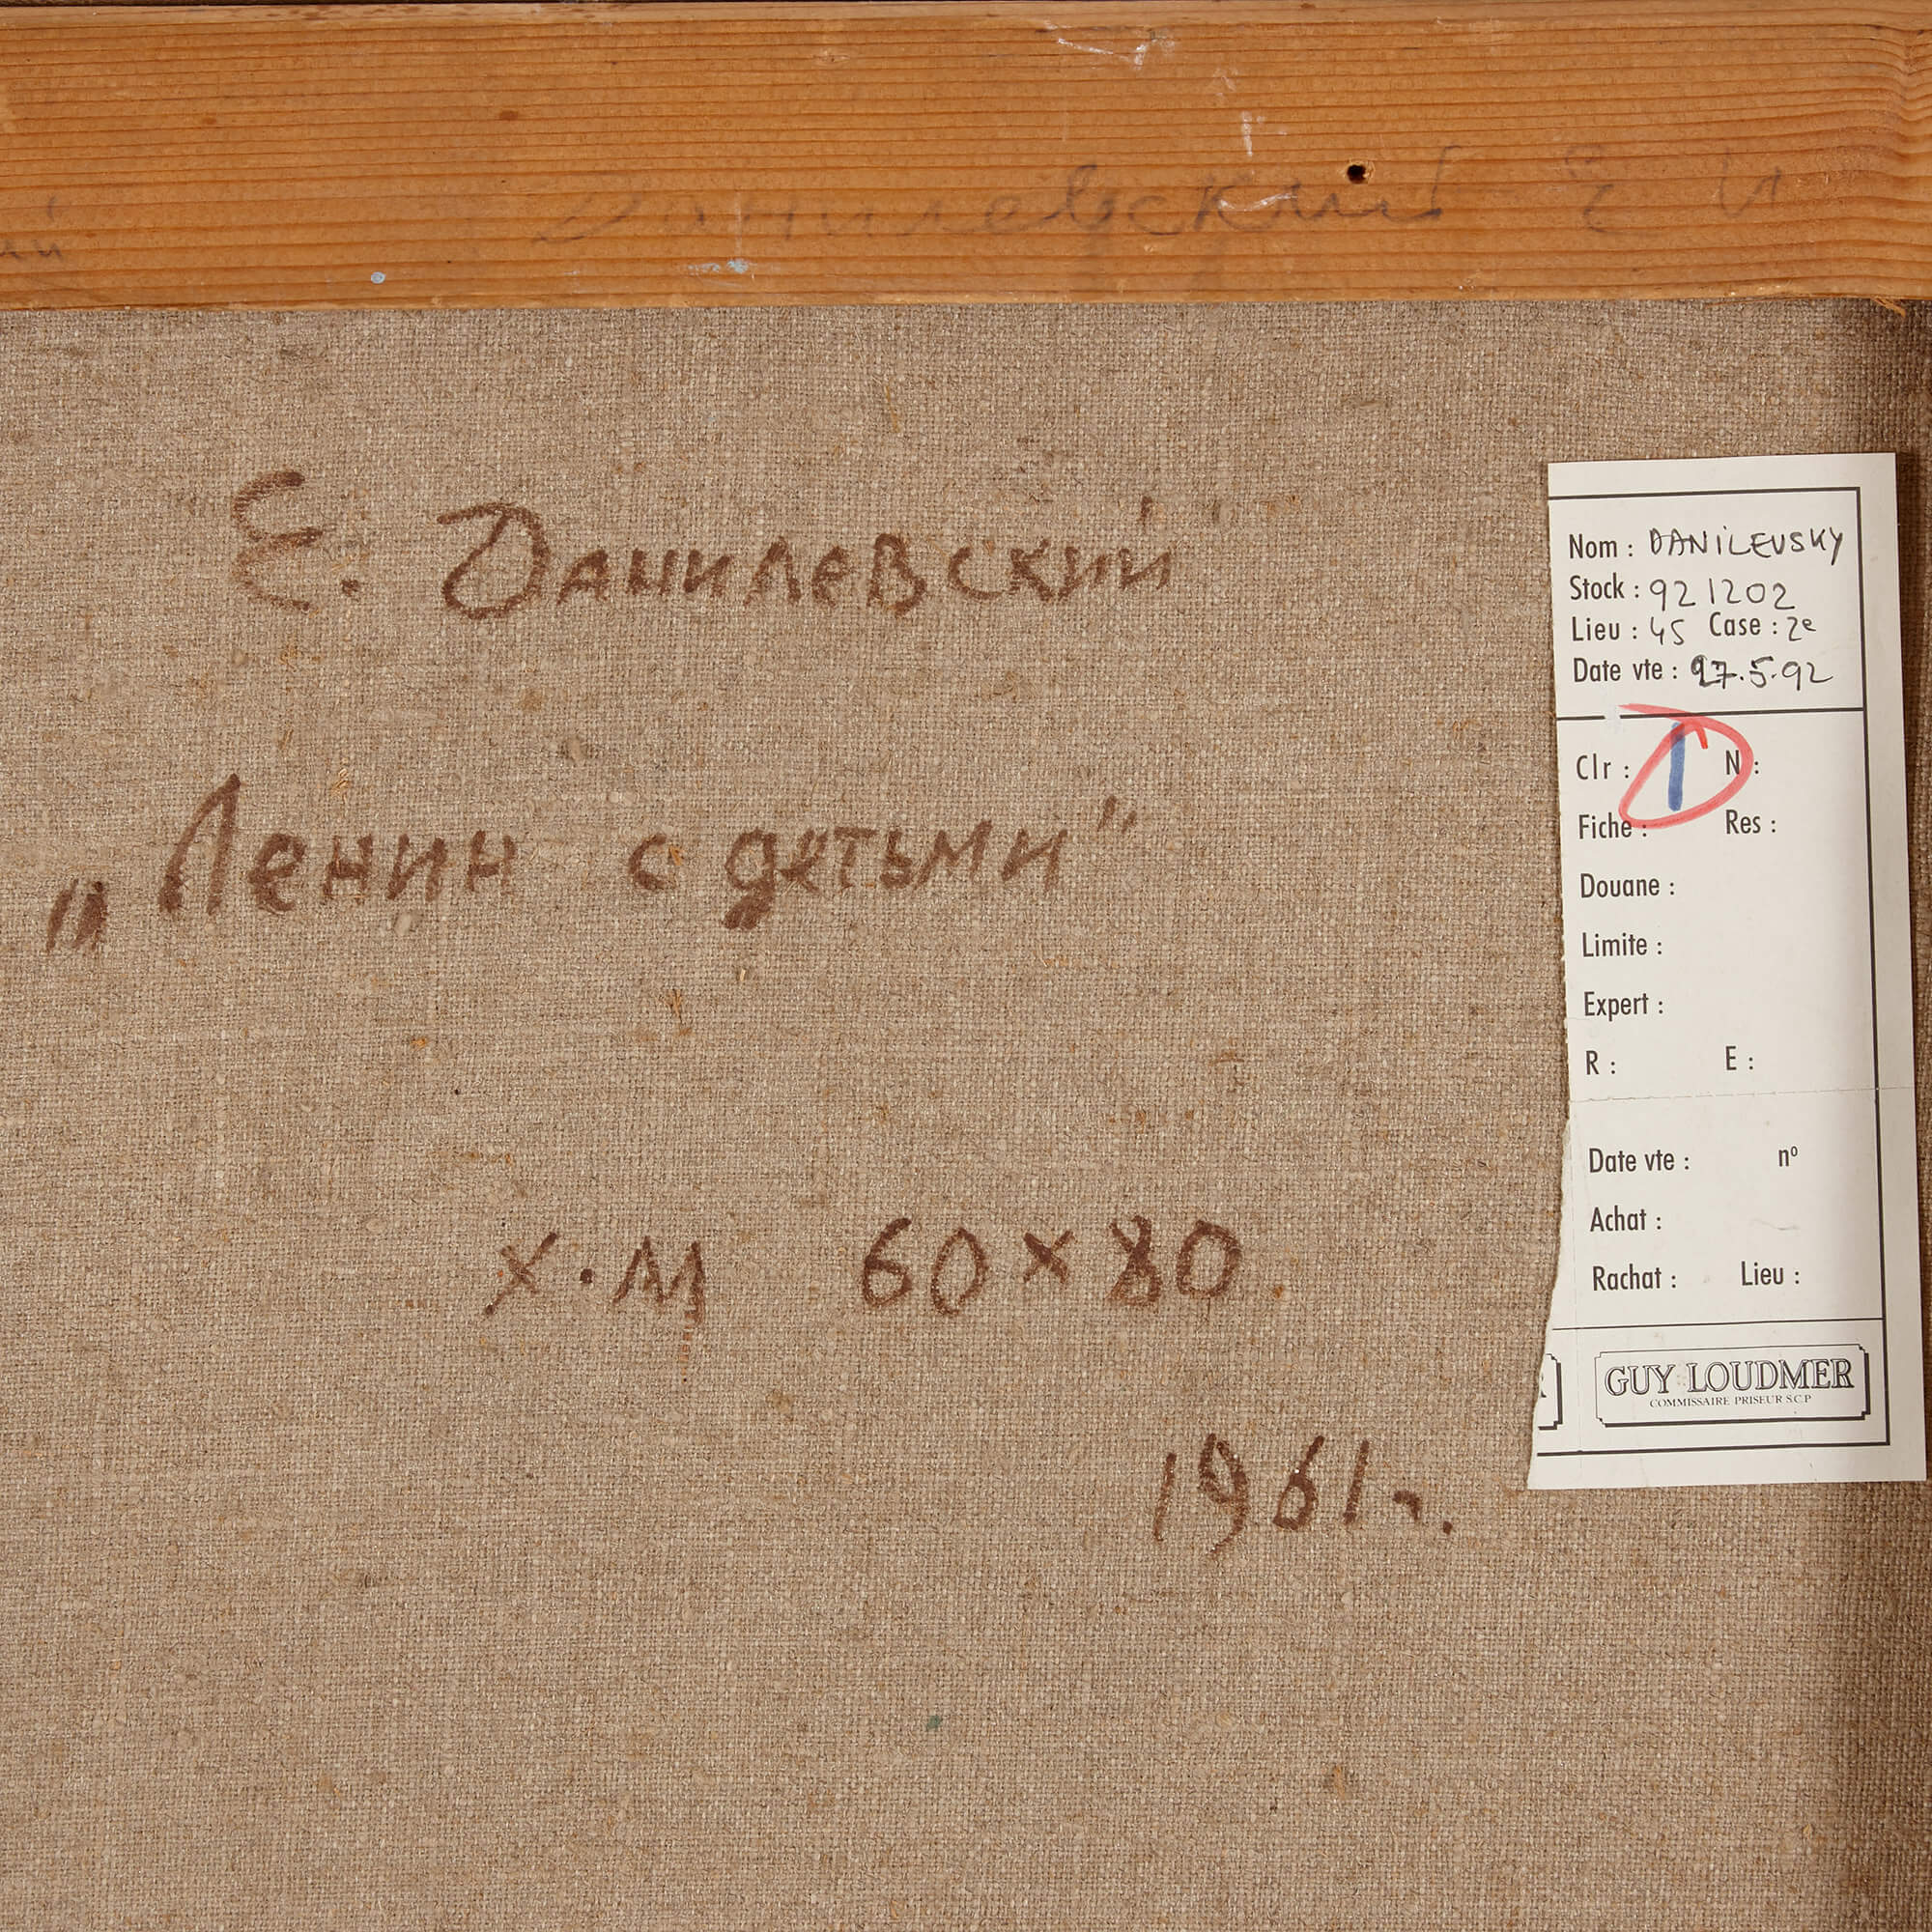 Данилевский Е И
ий
Е. Данилевский
„Ленин с детьми"
х.м 60×80.
1961г.
Nom : DANILEVSKY
Stock : 921202
Lieu : 45 Case : 2e
Date vte : 27.5.92
Clr : 1 N :
Fiche : Res :
Douane :
Limite :
Expert :
R : E :
Date vte : nº
Achat :
Rachat : Lieu :
GUY LOUDMER
COMMISSAIRE PRISEUR S.C.P